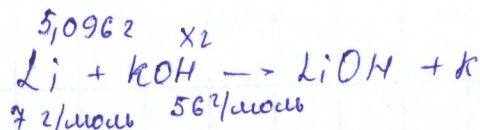 5,096г   Xг
Li + KOH → LiOH + K
7 г/моль   56 г/моль